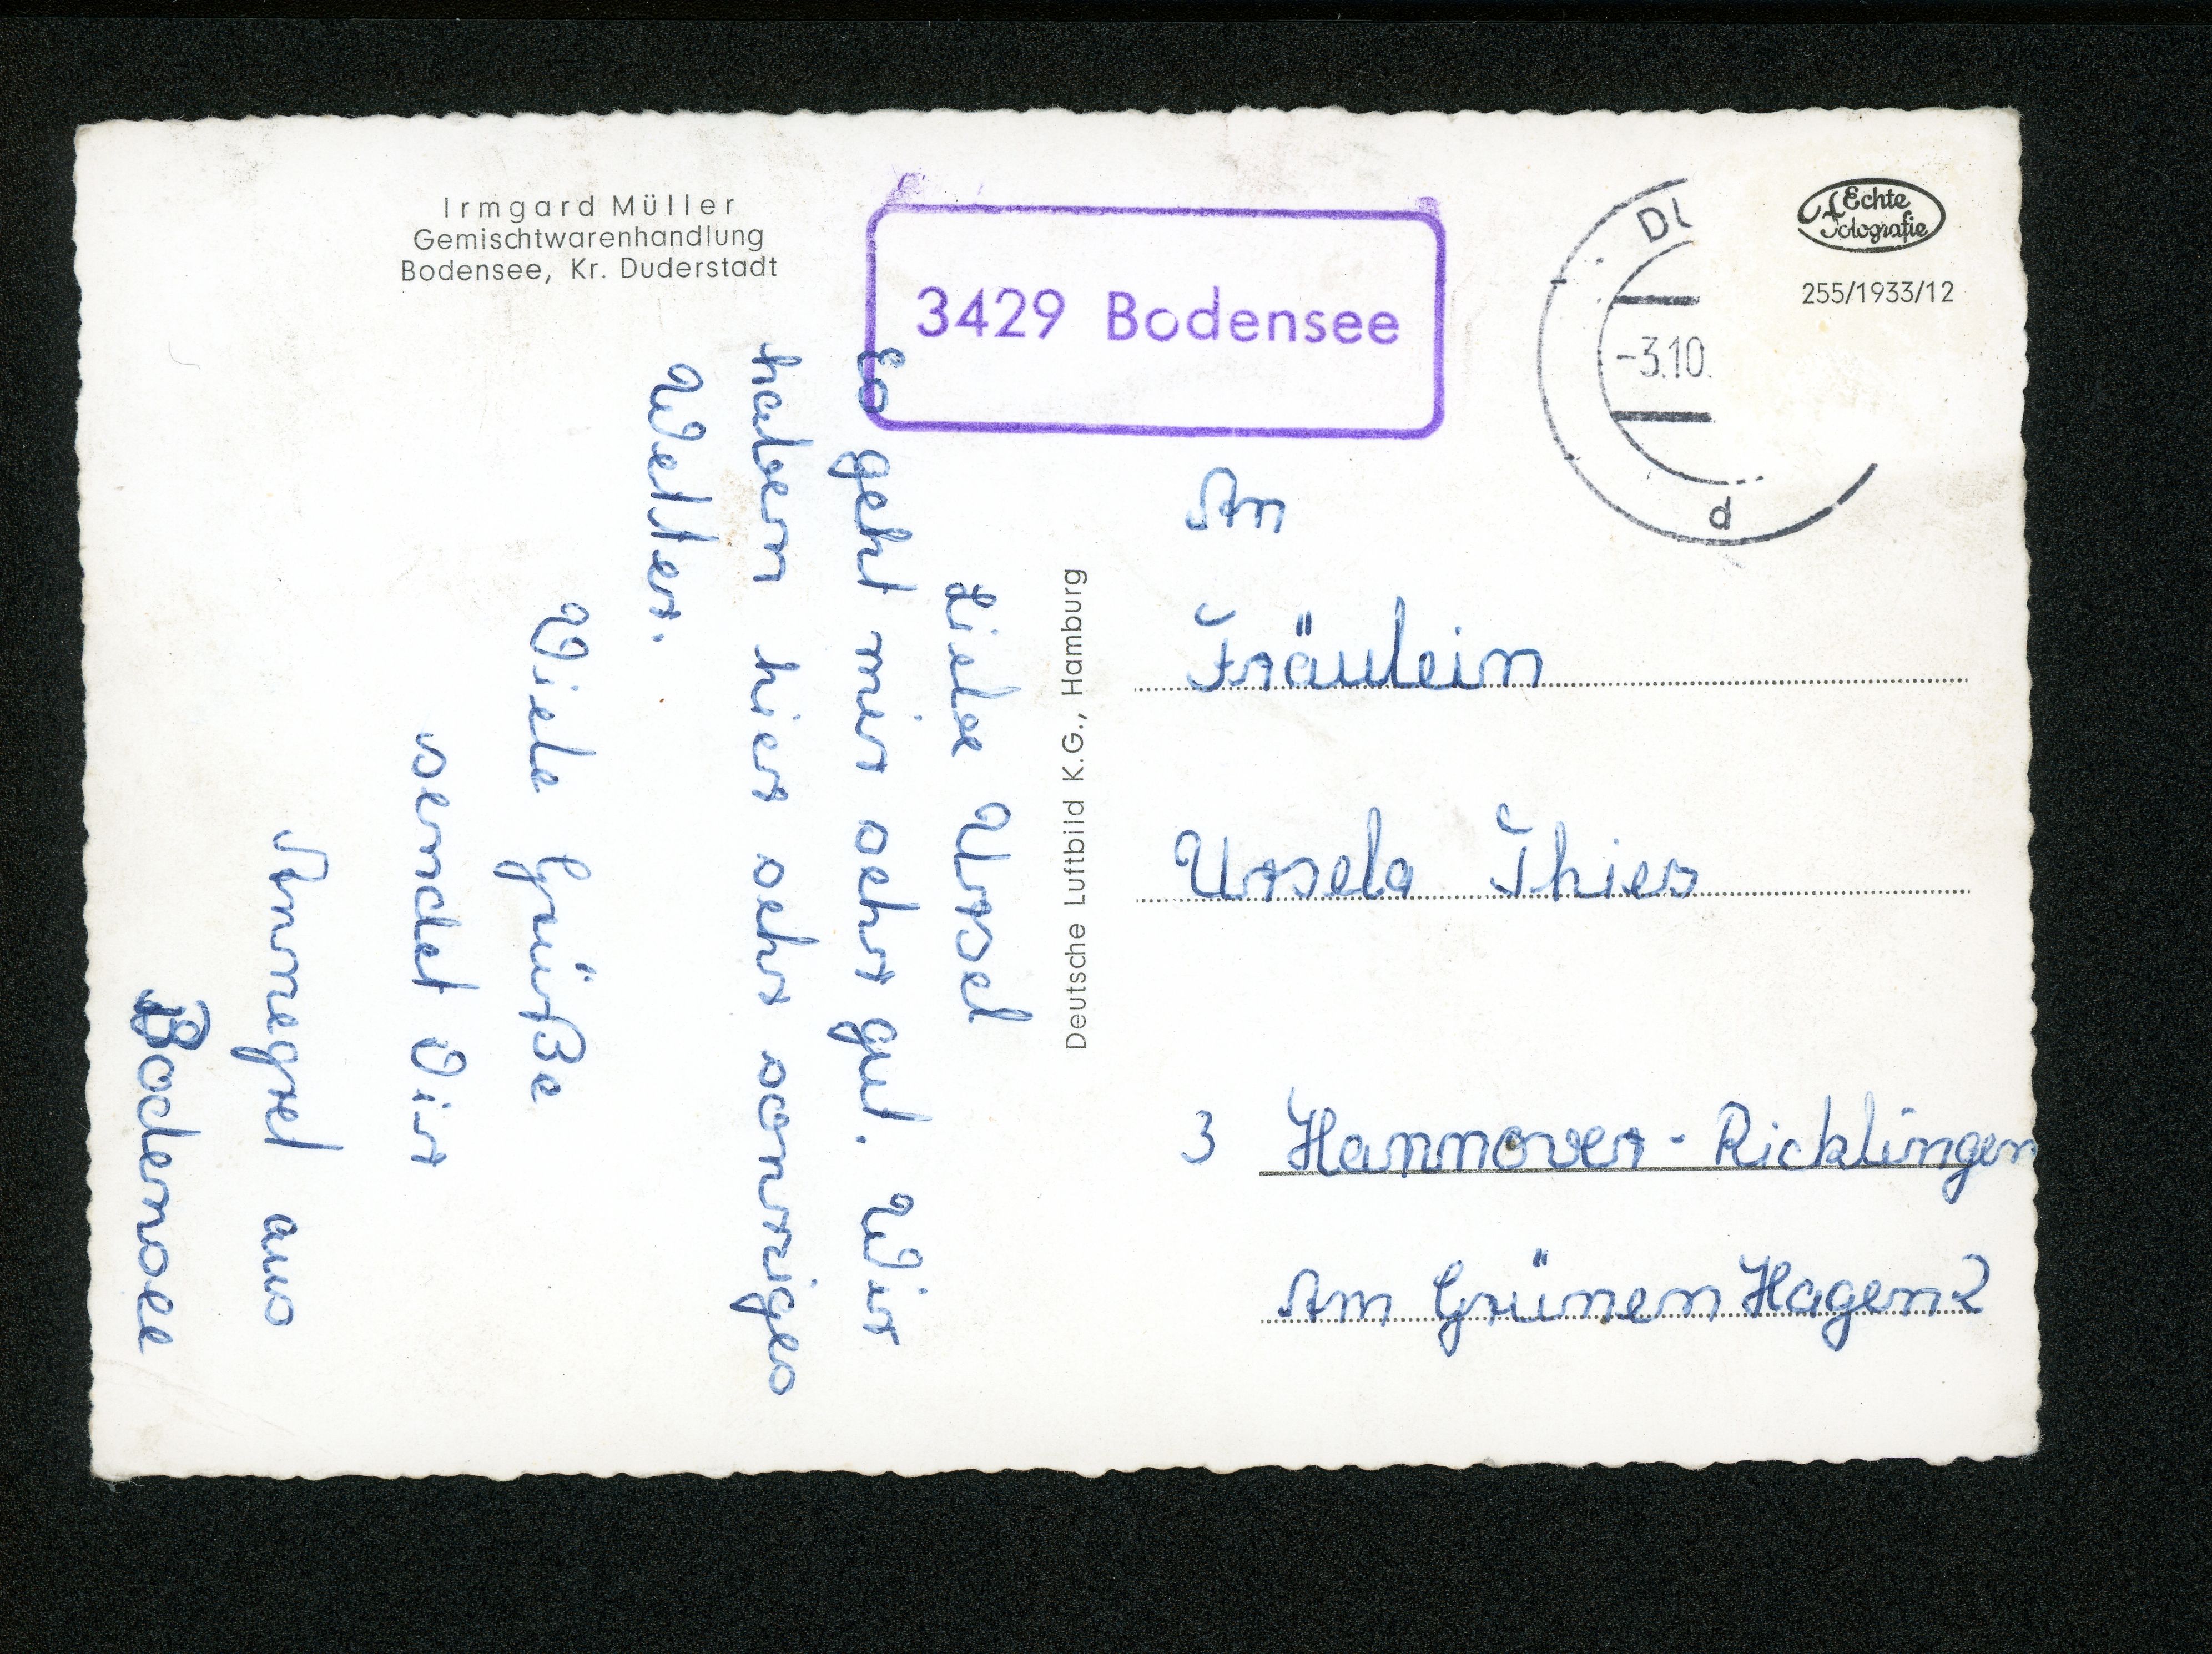 Irmgard Müller
Gemischtwarenhandlung
Bodensee, Kr. Duderstadt
3429 Bodensee
-3.10.
d
Echte
Fotografie
255/1933/12
Liebe Ursel
Es geht mir sehr gut. Wir
haben hier sehr sonniges
Wetter.
Viele Grüße
sendet Dir
Annegret aus
Bodensee
Deutsche Luftbild K.G., Hamburg
An
Fräulein
Ursela Thies
3 Hannover - Ricklingen
Am Grünen Hagen 2